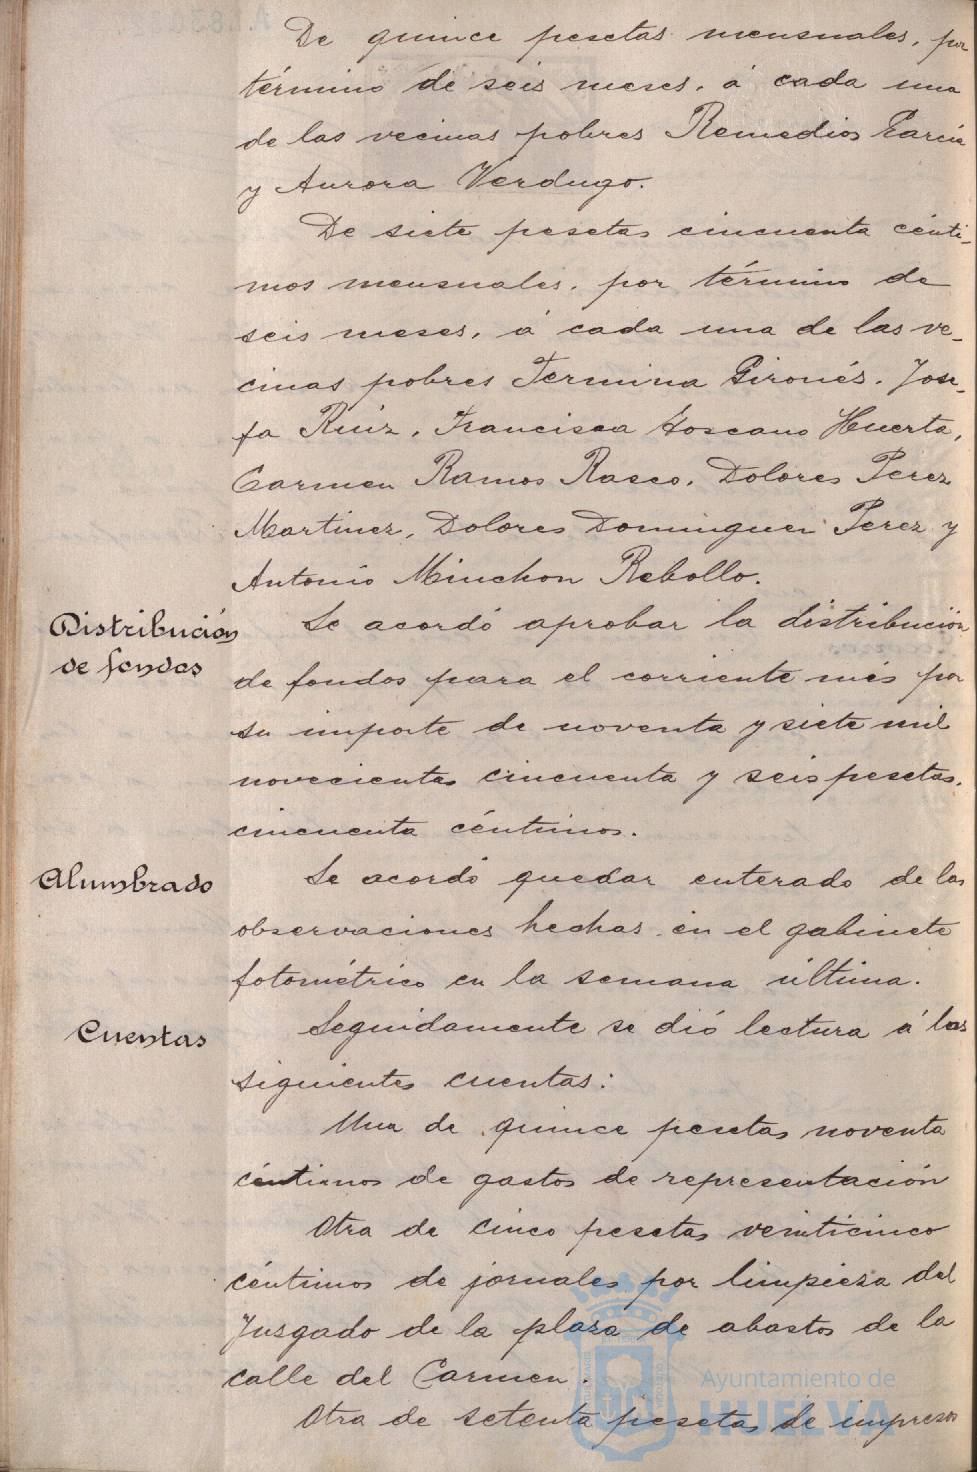 De quince pesetas mensuales, por
término de seis meses, á cada una
de las vecinas pobres Remedios García
y Aurora Verdugo.
De siete pesetas cincuenta cénti-
mos mensuales, por término de
seis meses, á cada una de las ve-
cinas pobres Fermina Gironés, Jose-
fa Ruiz, Francisca Toscano Huerta,
Carmen Ramos Rasco, Dolores Perez
Martinez, Dolores Dominguez Perez y
Antonio Minchon Rebollo.
Distribución
de fondos
Se acordó aprobar la distribución
de fondos para el corriente més por
su importe de noventa y siete mil
novecientas cincuenta y seis pesetas,
cincuenta céntimos.
Alumbrado
Se acordó quedar enterado de las
observaciones hechas en el gabinete
fotométrico en la semana última.
Cuentas
Seguidamente se dió lectura á las
siguientes cuentas:
Una de quince pesetas noventa
céntimos de gastos de representación
Otra de cinco pesetas veinticinco
céntimos de jornales por limpieza del
Juzgado de la plaza de abastos de la
calle del Carmen.
Otra de setenta pesetas de impresos
Ayuntamiento de
HUELVA